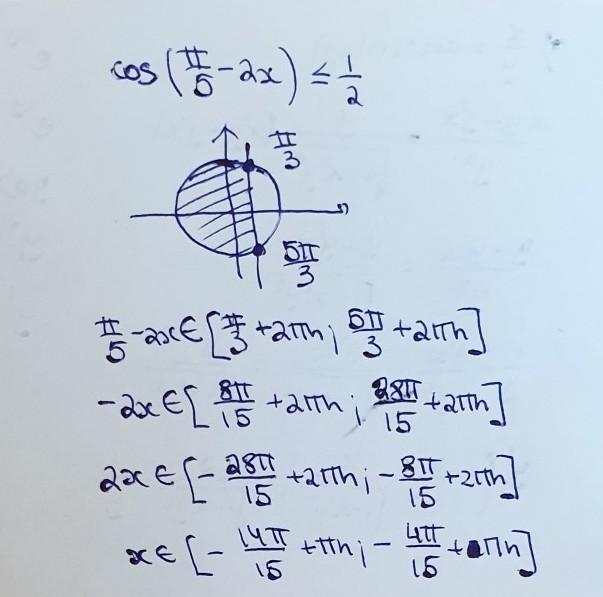 cos(π/5 - 2x) ≤ 1/2
π/3
5π/3
π/5 - 2x ∈ [π/3 + 2πn; 5π/3 + 2πn]
-2x ∈ [8π/15 + 2πn; 28π/15 + 2πn]
2x ∈ [-28π/15 + 2πn; -8π/15 + 2πn]
x ∈ [-14π/15 + πn; -4π/15 + πn]